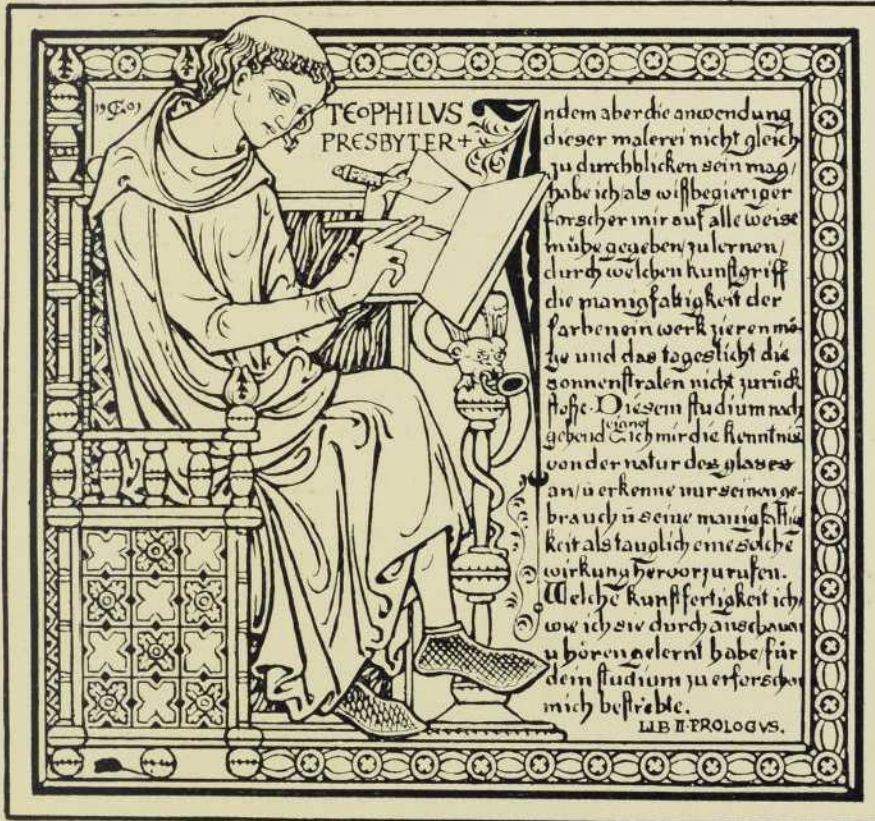 TEOPHILVS
PRESBYTER +
Indem aber die anwendung
dieser malerei nicht gleich
zu durchblicken sein mag/
habe ich/als wißbegieriger
forscher mir auf alle weise
mühe gegeben/zulernen/
durch welchen kunstgriff
die manigfaltigkeit der
farben ein werk zieren mö-
ge und das tageslicht die
sonnenstralen nicht zurück
stoße. Diesem studium nach
gehend eigne ich mir die kenntnis
von der natur des glases
an/ū erkenne nur seinen ge-
brauch ū seine manigfaltig
keit als tauglich eine solche
wirkung hervorzurufen.
Welche kunstfertigkeit ich/
wie ich sie durch anschauen
u hören gelernt habe/für
dein studium zu erforschen
mich bestrebte.
LIB II·PROLOGVS.